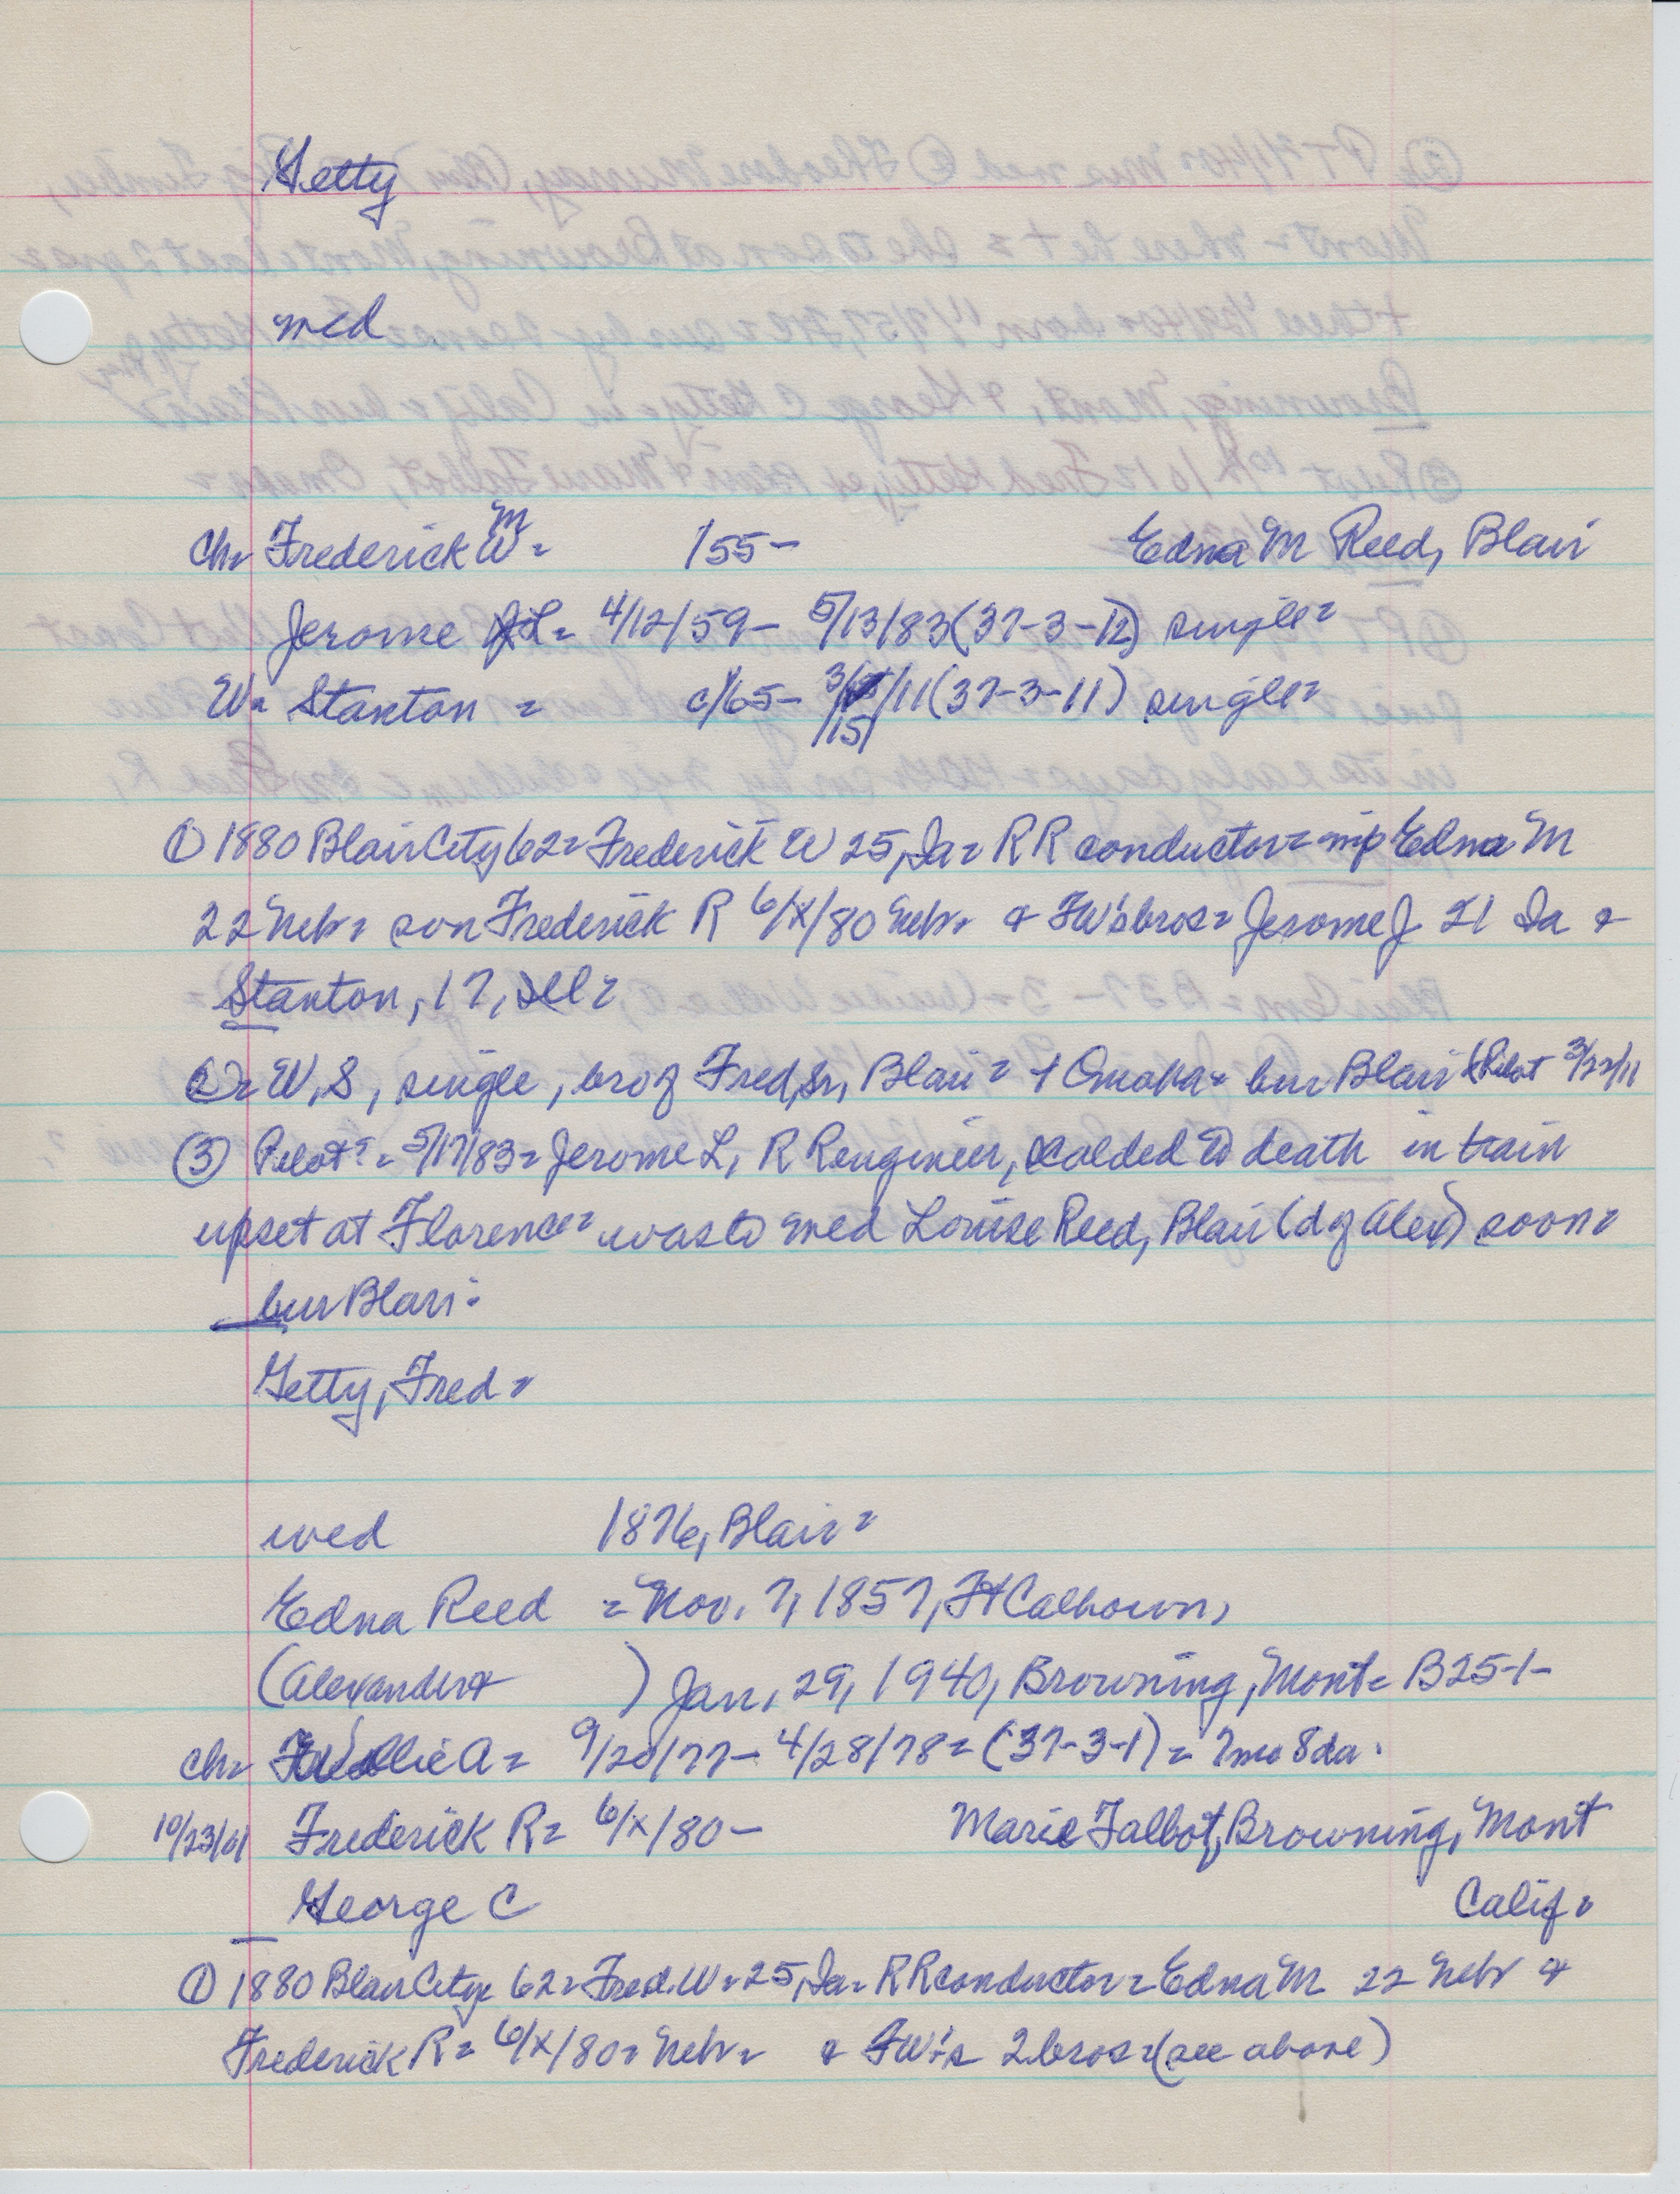 Getty
med
ch= Frederick W= M /55- Edna M Reed, Blair
Jerome L= 4/12/59- 5/13/83 (37-3-12) single=
W= Stanton = c/65- 3/15/11 (37-3-11) single=
① 1880 Blair City 62= Frederick W 25, Ia= RR conductor= mp Edna M
22 Nebr= son Frederick R 6/x/80 Nebr= & FW's bros= Jerome J 21 Ia &
Stanton, 17, Ill=
②= W, S, single, bro of Fred, Sr, Blair= + Omaha= bur Blair (Pilot 3/22/11
③ Pilot= 5/17/83= Jerome L, RR engineer, scalded to death in train
upset at Florence= was to wed Louise Reed, Blair (d of Alex) soon=
bur Blair=
Getty, Fred=
wed 1876, Blair=
Edna Reed = Nov. 7, 1857, Ft Calhoun,
(Alexander+ ) Jan, 29, 1940, Browning, Mont= B25-1-
ch= Willie A= 9/20/77- 4/28/78= (37-3-1)= 7mo 8da.
10/23/01 Frederick R= 6/x/80- Marie Talbot, Browning, Mont
George C Calif=
① 1880 Blair City 62= Fred. W=25, Ia= RR conductor= Edna M 22 Nebr &
Frederick R= 6/x/80= Nebr= & FW's 2 bros=(see above)